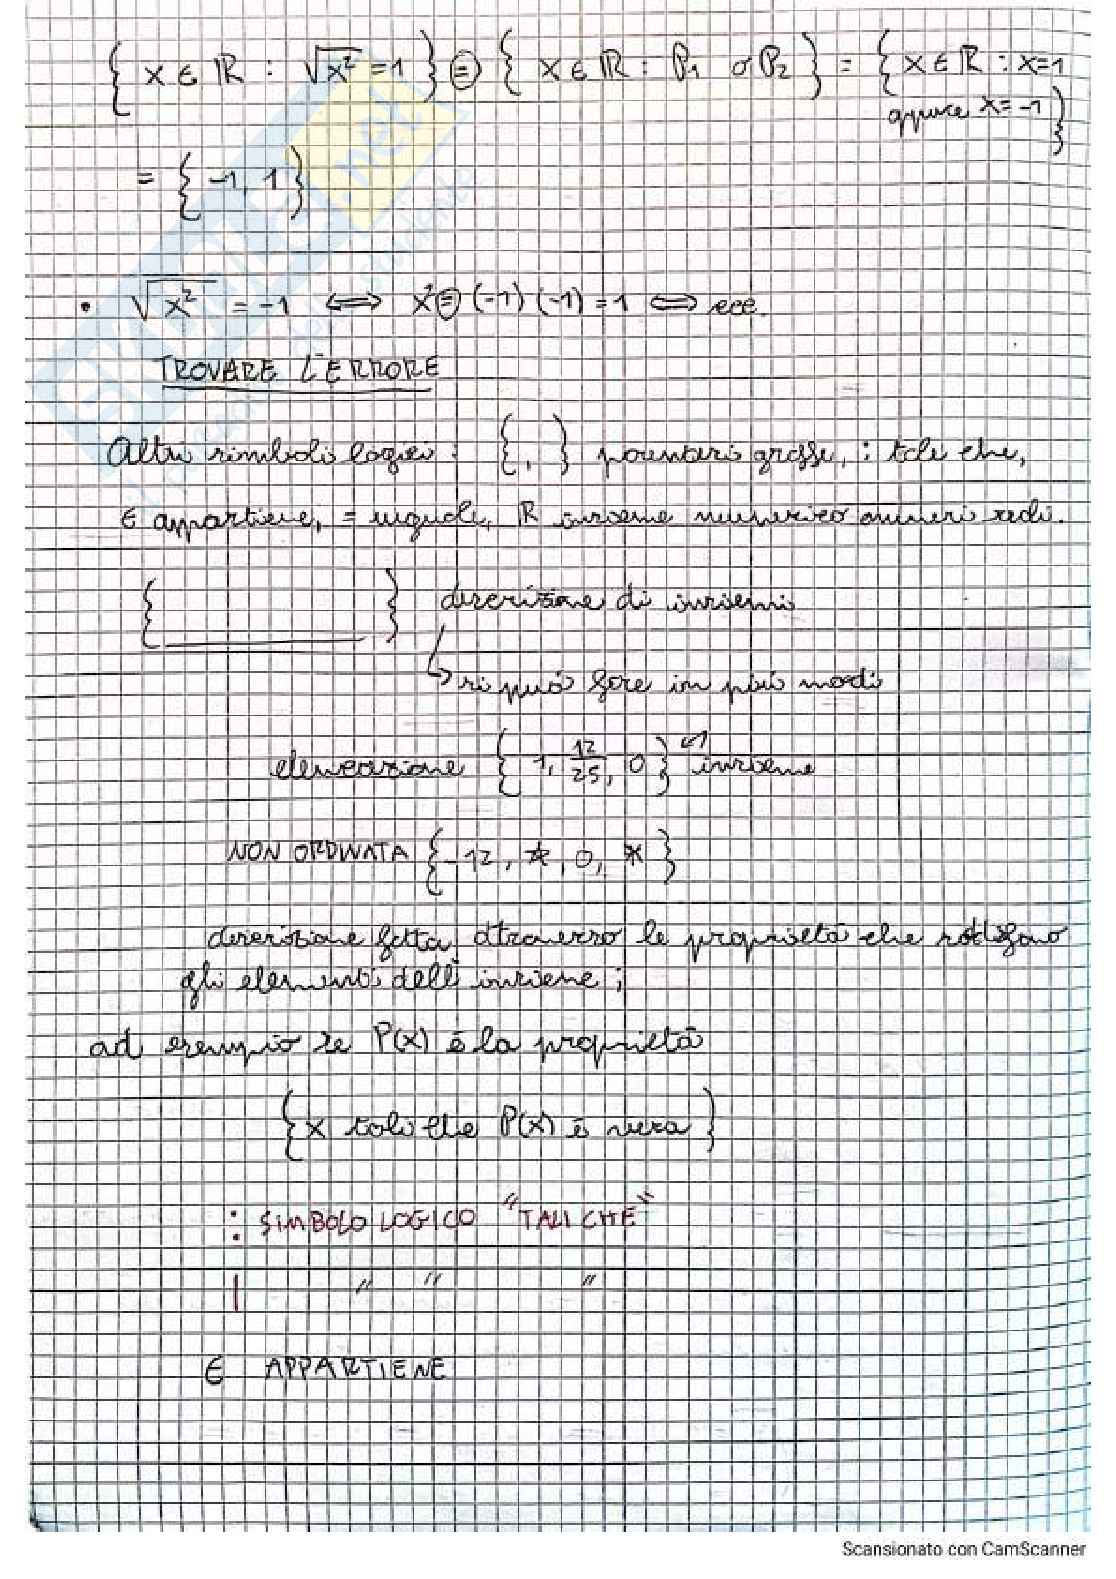 { x ∈ ℝ : √x² = 1 } = { x ∈ ℝ : P₁ o P₂ } = { x ∈ ℝ : x=1
oppure x = -1 }
= { -1, 1 }
• √x² = -1 ⟺ x² = (-1)(-1) = 1 ⟺ ecc.
TROVARE L'ERRORE
Altri simboli logici : { , } parentesi graffe, : tale che,
∈ appartiene, = uguale, ℝ insieme numerico numeri reali.
{ } descrizione di insiemi
↳ si può fare in più modi
elencazione { 1, 12/25, 0 } insieme
NON ORDINATA { -12, ☆, 0, * }
descrizione fatta attraverso le proprietà che soddisfano
gli elementi dell'insieme ;
ad esempio se P(x) è la proprietà
{ x tali che P(x) è vera }
: SIMBOLO LOGICO "TALI CHE"
| " " "
∈ APPARTIENE
Scansionato con CamScanner